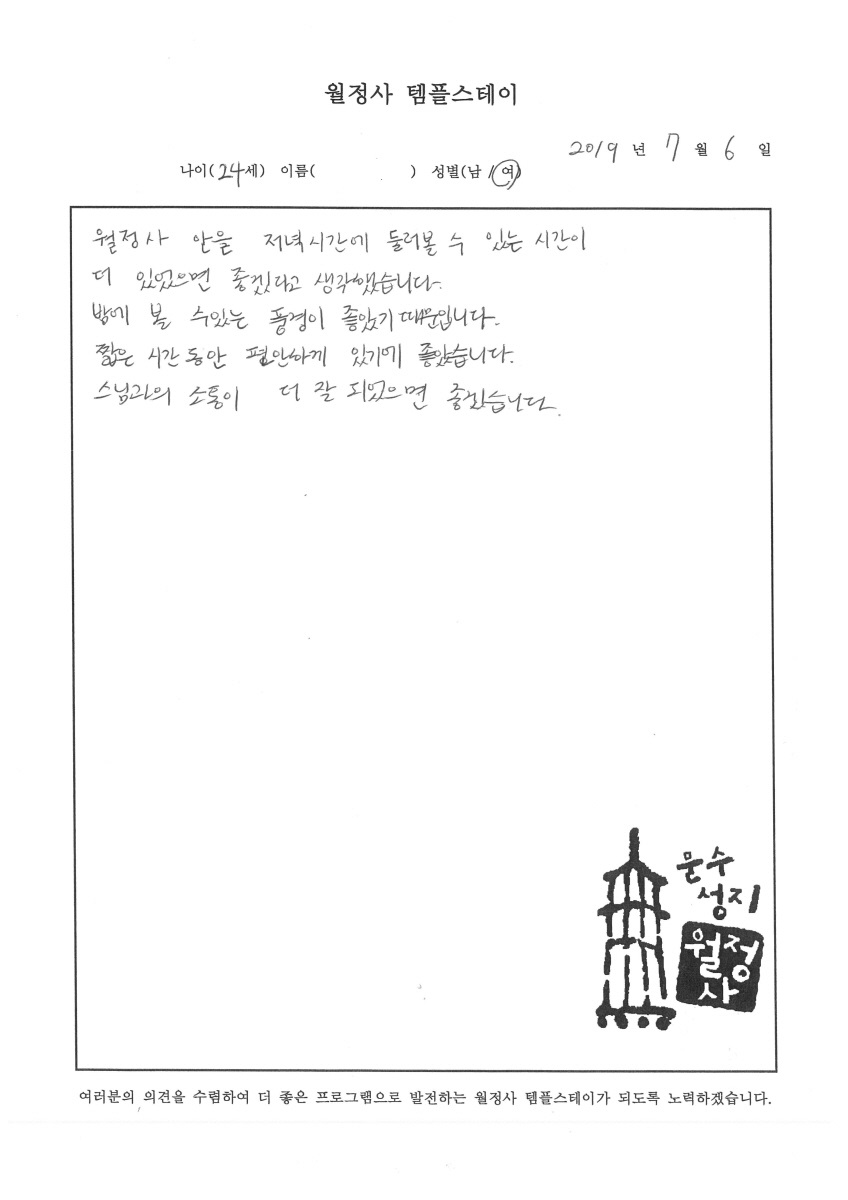 월정사 템플스테이
2019 년 7 월 6 일
나이(24세) 이름( ) 성별(남 / 여)
월정사 안을 저녁시간에 둘러볼 수 있는 시간이
더 있었으면 좋겠다고 생각했습니다.
밤에 볼 수있는 풍경이 좋았기 때문입니다.
짧은 시간동안 편안하게 있기에 좋았습니다.
스님과의 소통이 더 잘 되었으면 좋겠습니다.
문수
성지
월정
사
여러분의 의견을 수렴하여 더 좋은 프로그램으로 발전하는 월정사 템플스테이가 되도록 노력하겠습니다.